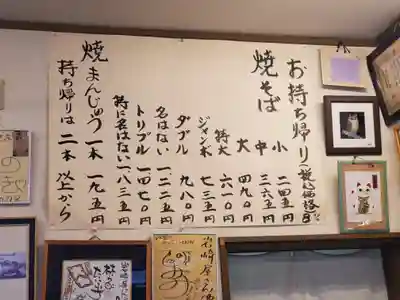 お持ち帰り(税込価格8%)
焼そば
小 二四五円
中 三六五円
大 四九〇円
特大 六一〇円
ジャンボ 七三五円
ダブル 九八〇円
名はない 一二二五円
トリプル 一四七〇円
特に名はない 一八三五円
焼まんじゅう 一本 一九五円
持ち帰りは 二本以上から
岩崎屋さん